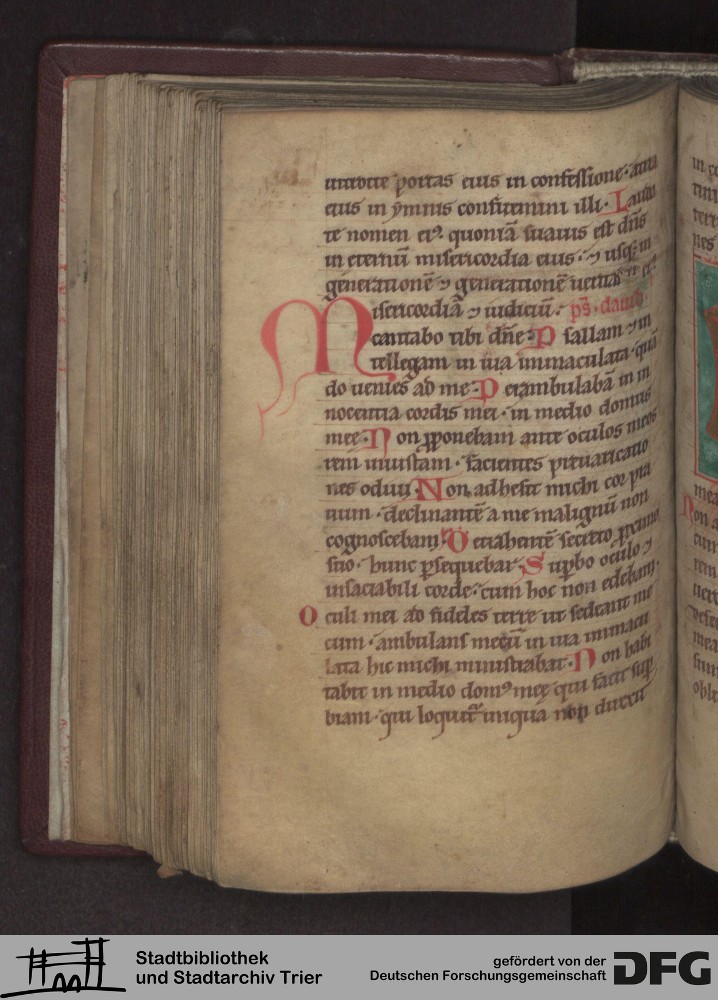 introite portas eius in confessione · atria
eius in ẏmnis confitemini illi · Lauda
te nomen ei᷒ quoniā suauis est dn̄s
in eternū misericordia eius · ⁊ usq; in
generationē ⁊ generationē ueritas ei᷒
Misericordiā ⁊ iudiciū · ps̄ · dauid
cantabo tibi dn̄e · Psallam ⁊ in
tellegam in uia immaculata · quā
do uenies ad me · Perambulabā in in
nocentia cordis mei · in medio domus
mee · Non ꝓponebam ante oculos meos
rem iniustam · facientes preuaricatio
nes odiui · Non adhesit michi cor pra
uum · declinantē a me malignū non
cognoscebam · Detrahentē secreto proximo
suo · hunc ꝑsequebar · Suꝑbo oculo ⁊
insaciabili corde · cum hoc non edebam ·
Oculi mei ad fideles terre ut sedeant me
cum · ambulans mecū in uia immacu
lata hic michi ministrabat · Non habi
tabit in medio dom᷒ meę qui facit suꝑ
biam · qui loquit᷑ iniqua non direxit
in
non
cum
rem
mea
obli
Stadtbibliothek
und Stadtarchiv Trier
gefördert von der
Deutschen Forschungsgemeinschaft
DFG